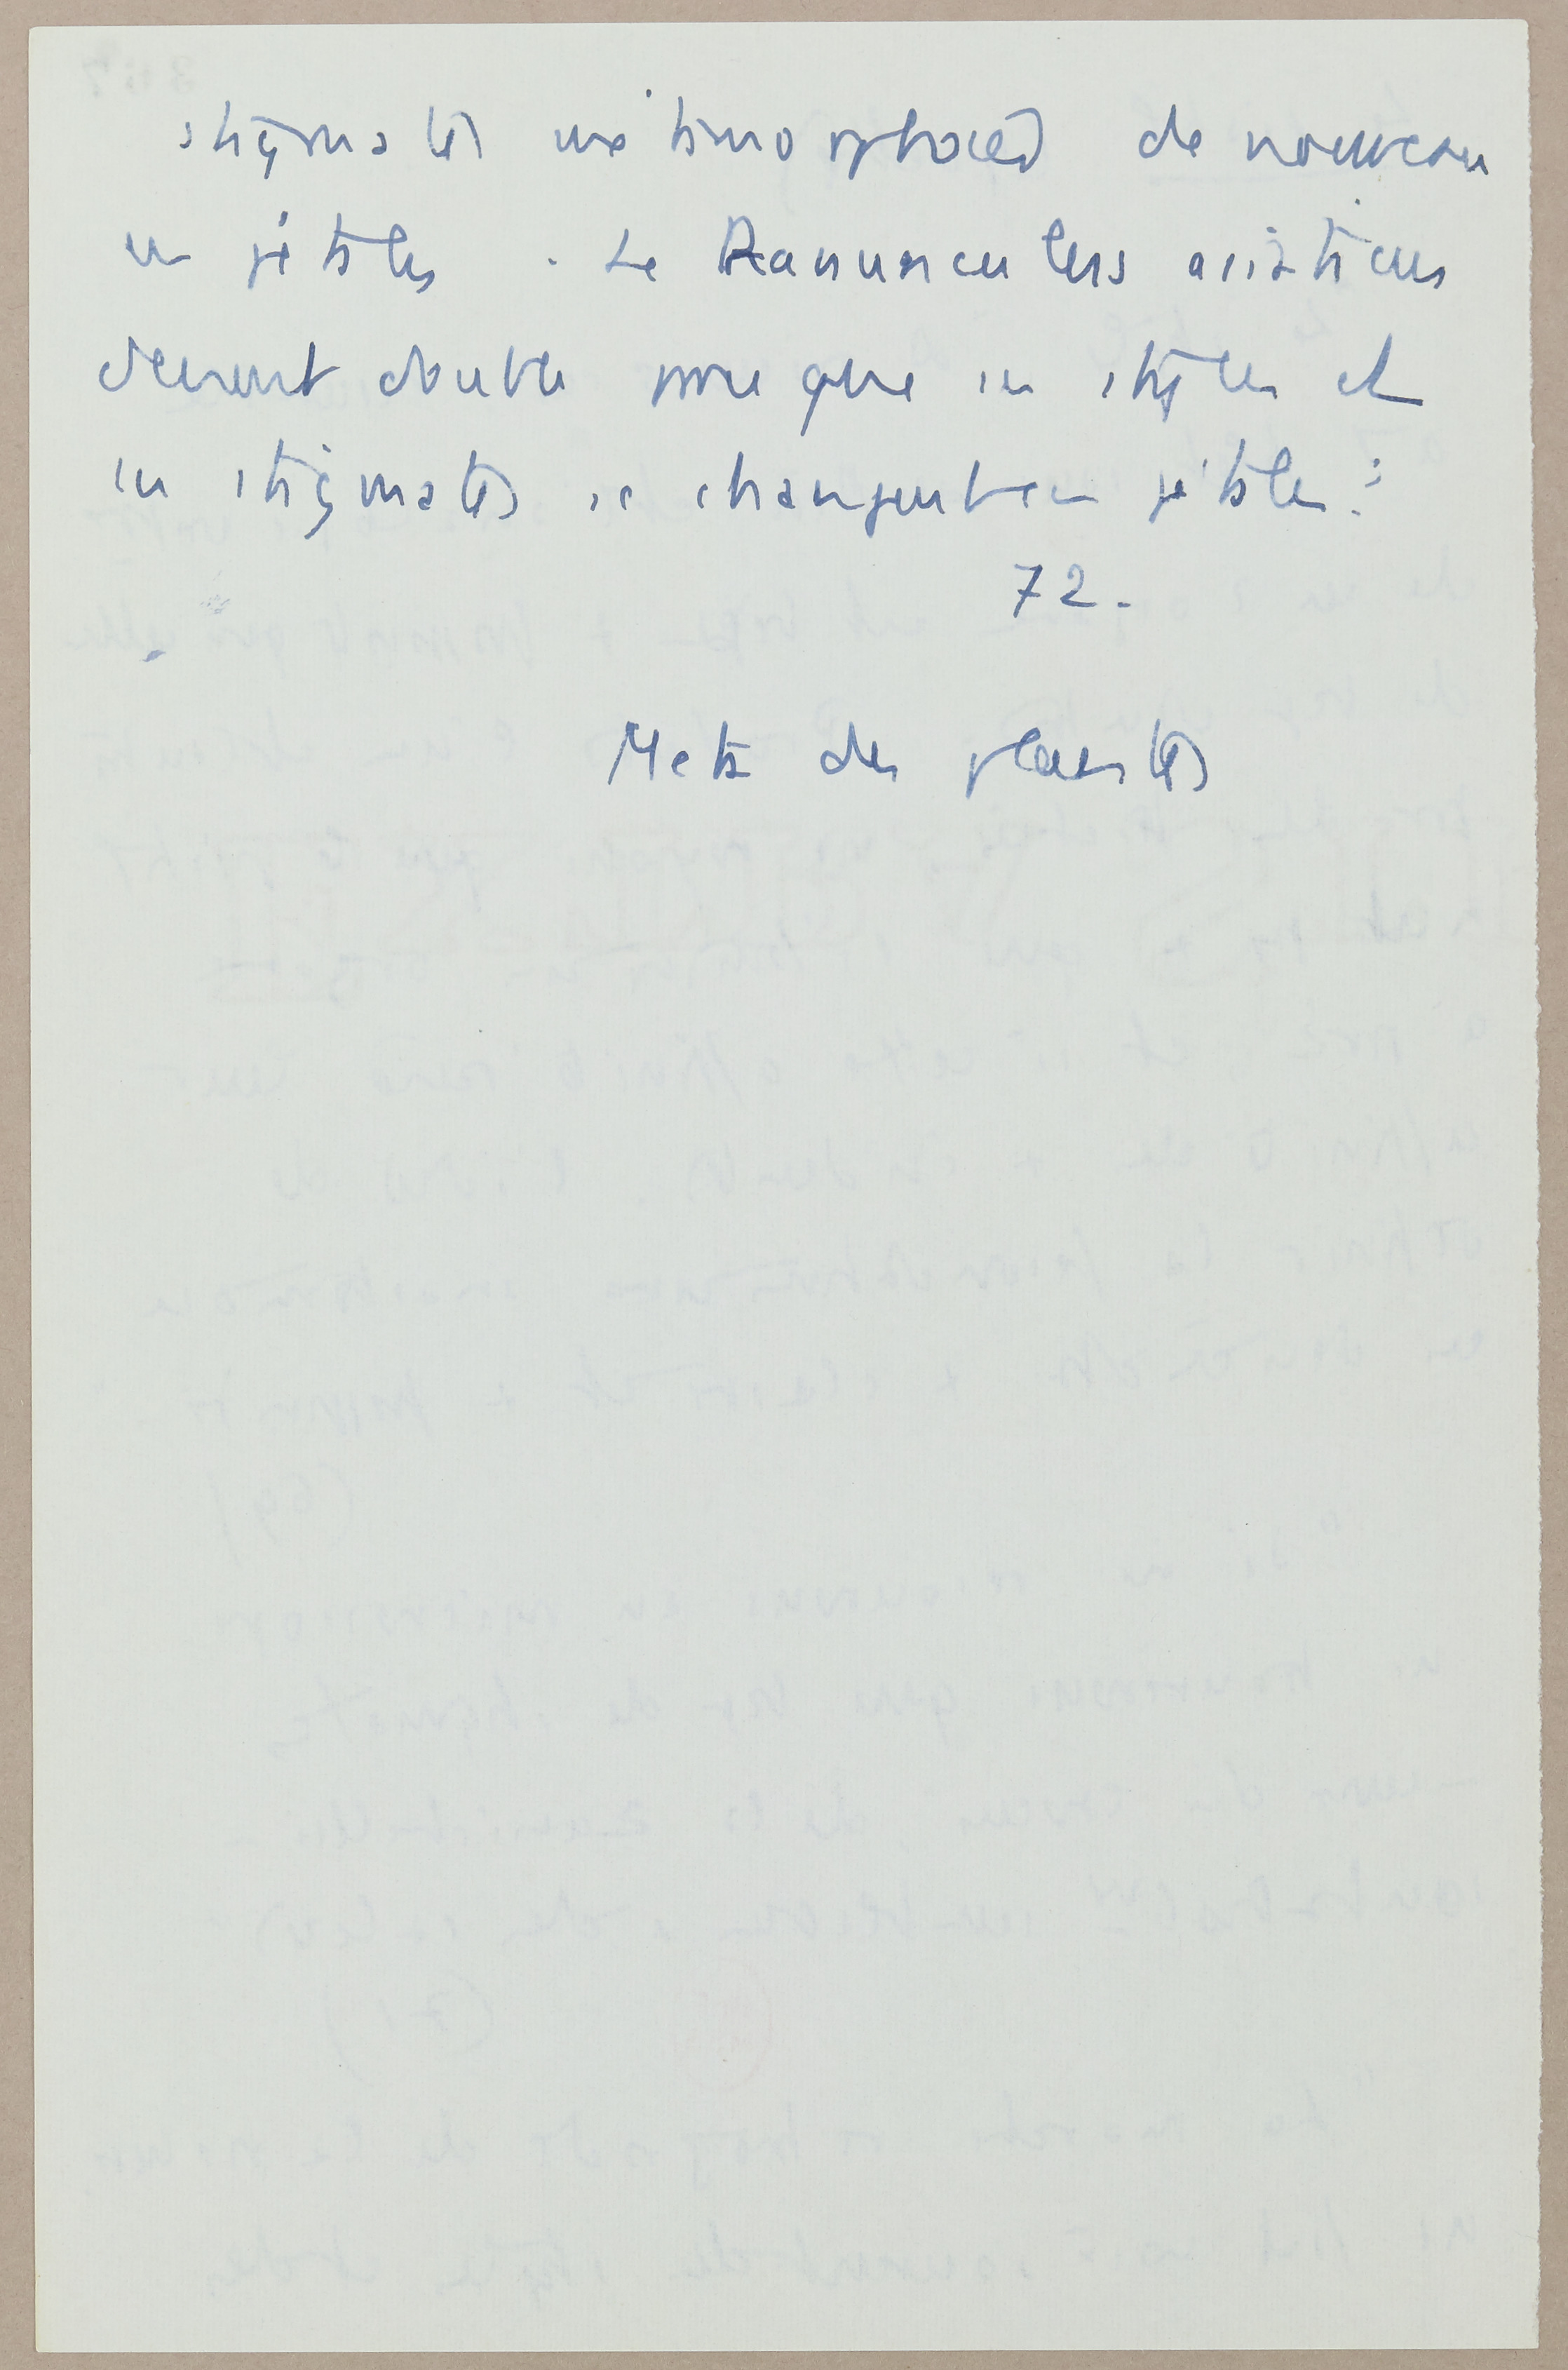 stigmates métamorphosés de nouveau
en pétales. Le Ranunculus asiaticus
devient double parce que les styles et
les stigmates se changent en pétales.
72.
Meta des plantes